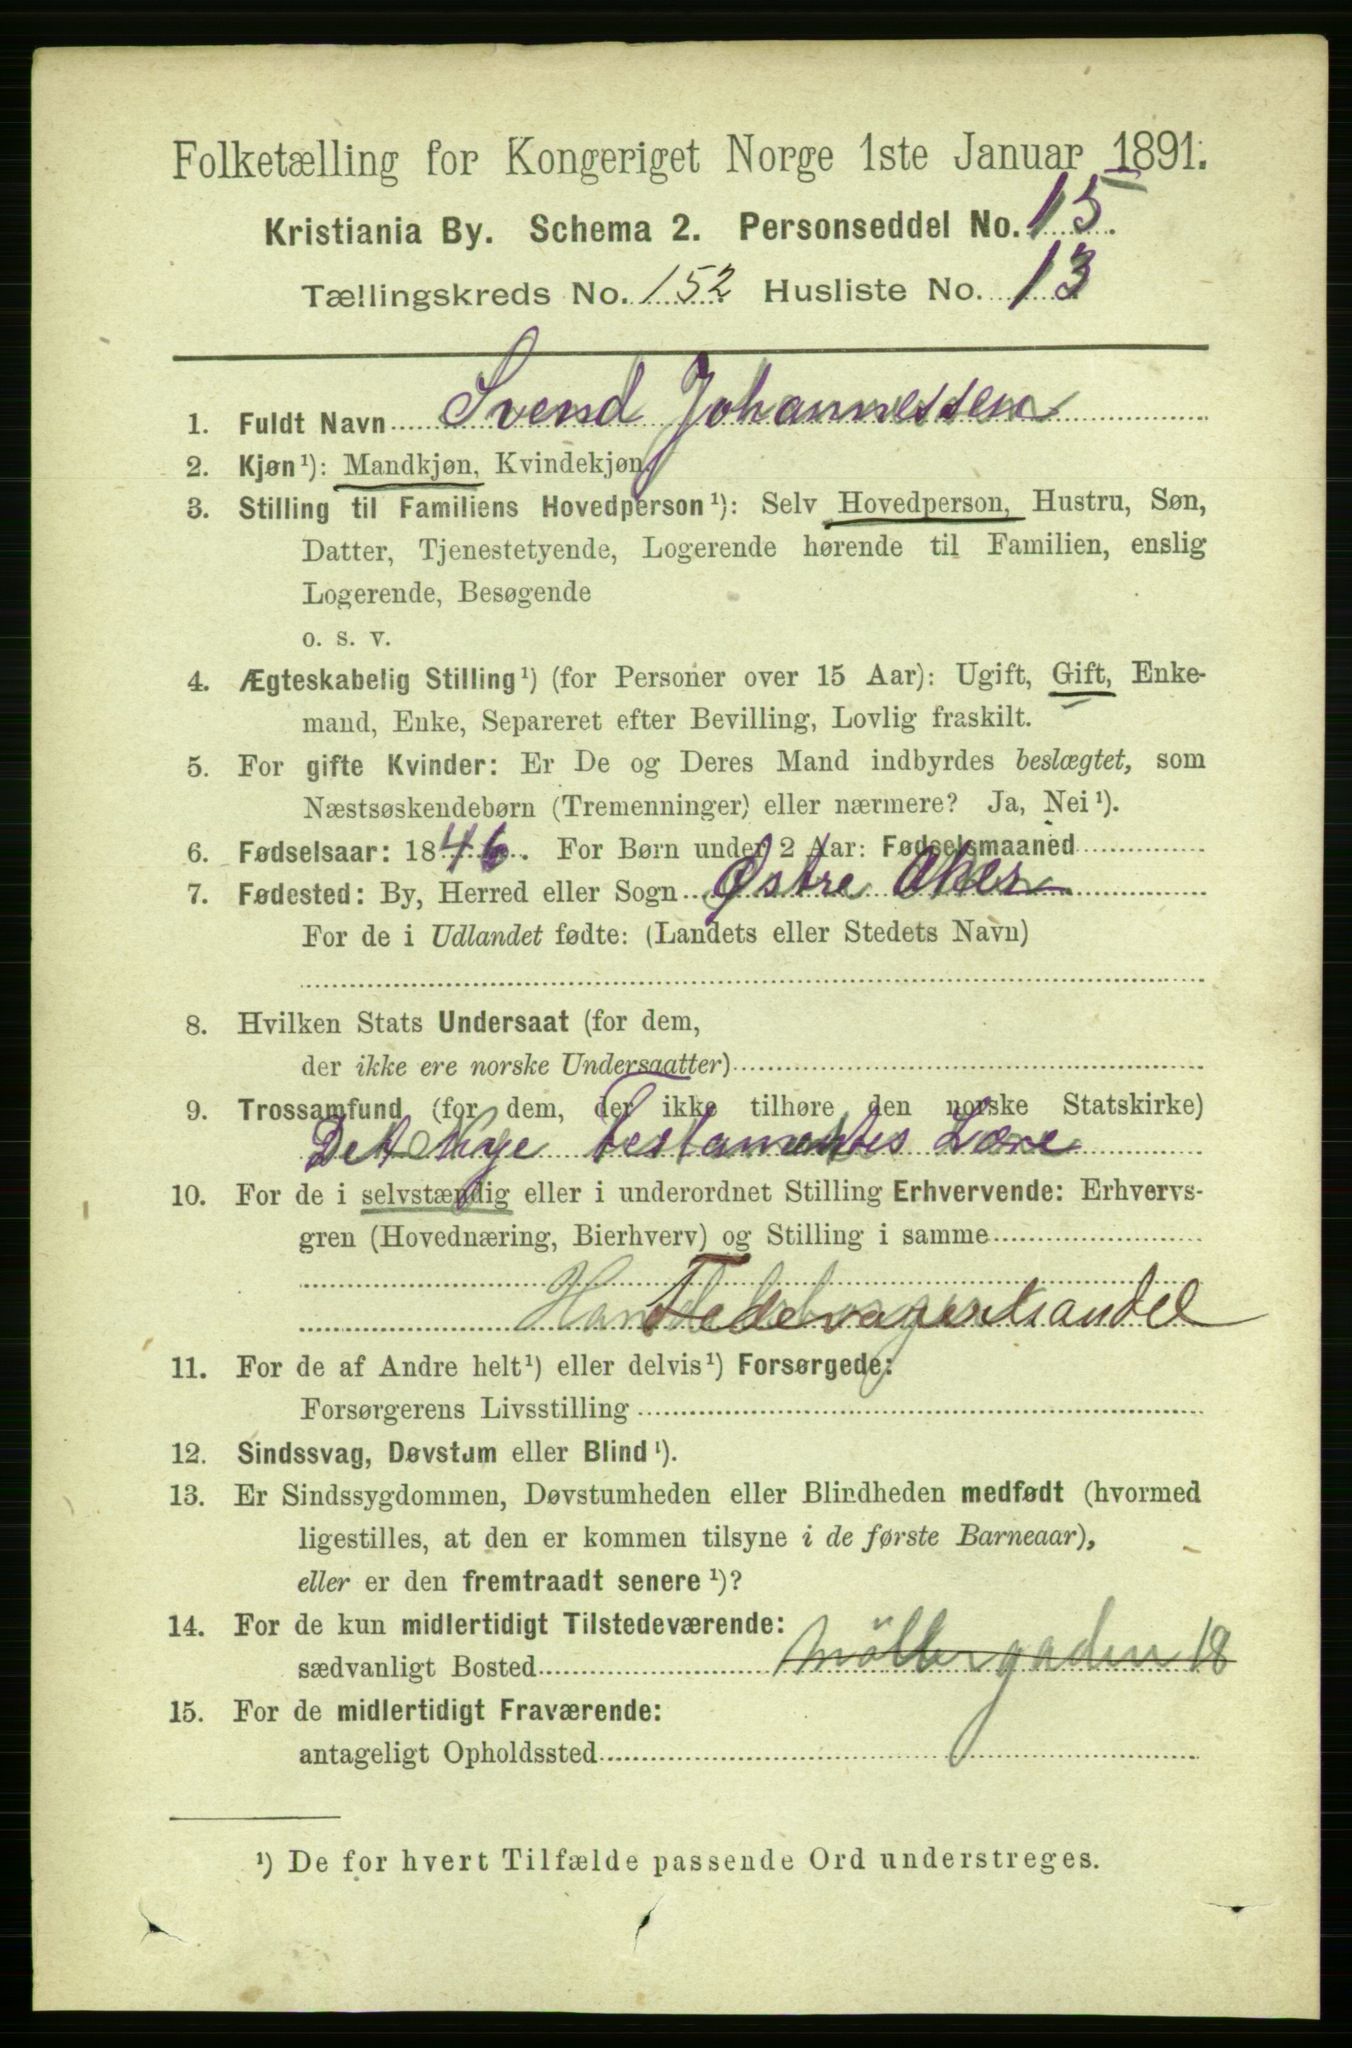 Folketælling for Kongeriget Norge 1ste Januar 1891.
Kristiania By. Schema 2. Personseddel No. 15.
Tællingskreds No. 152 Husliste No. 13
1. Fuldt Navn Svend Johannessen
2. Kjøn¹): Mandkjøn, Kvindekjøn.
3. Stilling til Familiens Hovedperson¹): Selv Hovedperson, Hustru, Søn,
Datter, Tjenestetyende, Logerende hørende til Familien, enslig
Logerende, Besøgende
o. s. v.
4. Ægteskabelig Stilling¹) (for Personer over 15 Aar): Ugift, Gift, Enke-
mand, Enke, Separeret efter Bevilling, Lovlig fraskilt.
5. For gifte Kvinder: Er De og Deres Mand indbyrdes beslægtet, som
Næstsøskendebørn (Tremenninger) eller nærmere? Ja, Nei¹).
6. Fødselsaar: 1846. For Børn under 2 Aar: Fødselsmaaned
7. Fødested: By, Herred eller Sogn Østre Aker
For de i Udlandet fødte: (Landets eller Stedets Navn)
8. Hvilken Stats Undersaat (for dem,
der ikke ere norske Undersaatter)
9. Trossamfund (for dem, der ikke tilhøre den norske Statskirke)
Det Nye Testamentes Lære
10. For de i selvstændig eller i underordnet Stilling Erhvervende: Erhvervs-
gren (Hovednæring, Bierhverv) og Stilling i samme
Fedevarehandel
11. For de af Andre helt¹) eller delvis¹) Forsørgede:
Forsørgerens Livsstilling
12. Sindssvag, Døvstum eller Blind¹).
13. Er Sindssygdommen, Døvstumheden eller Blindheden medfødt (hvormed
ligestilles, at den er kommen tilsyne i de første Barneaar),
eller er den fremtraadt senere¹)?
14. For de kun midlertidigt Tilstedeværende:
sædvanligt Bosted Möllergaden 18
15. For de midlertidigt Fraværende:
antageligt Opholdssted
¹) De for hvert Tilfælde passende Ord understreges.